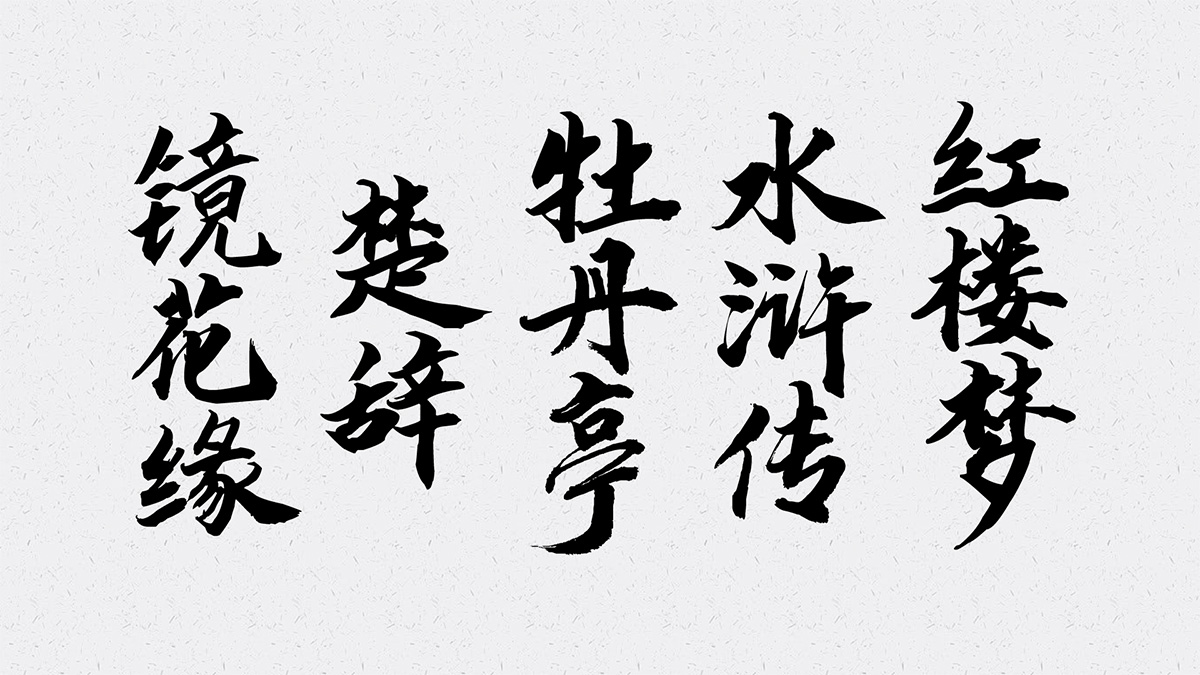 红楼梦
水浒传
牡丹亭
楚辞
镜花缘